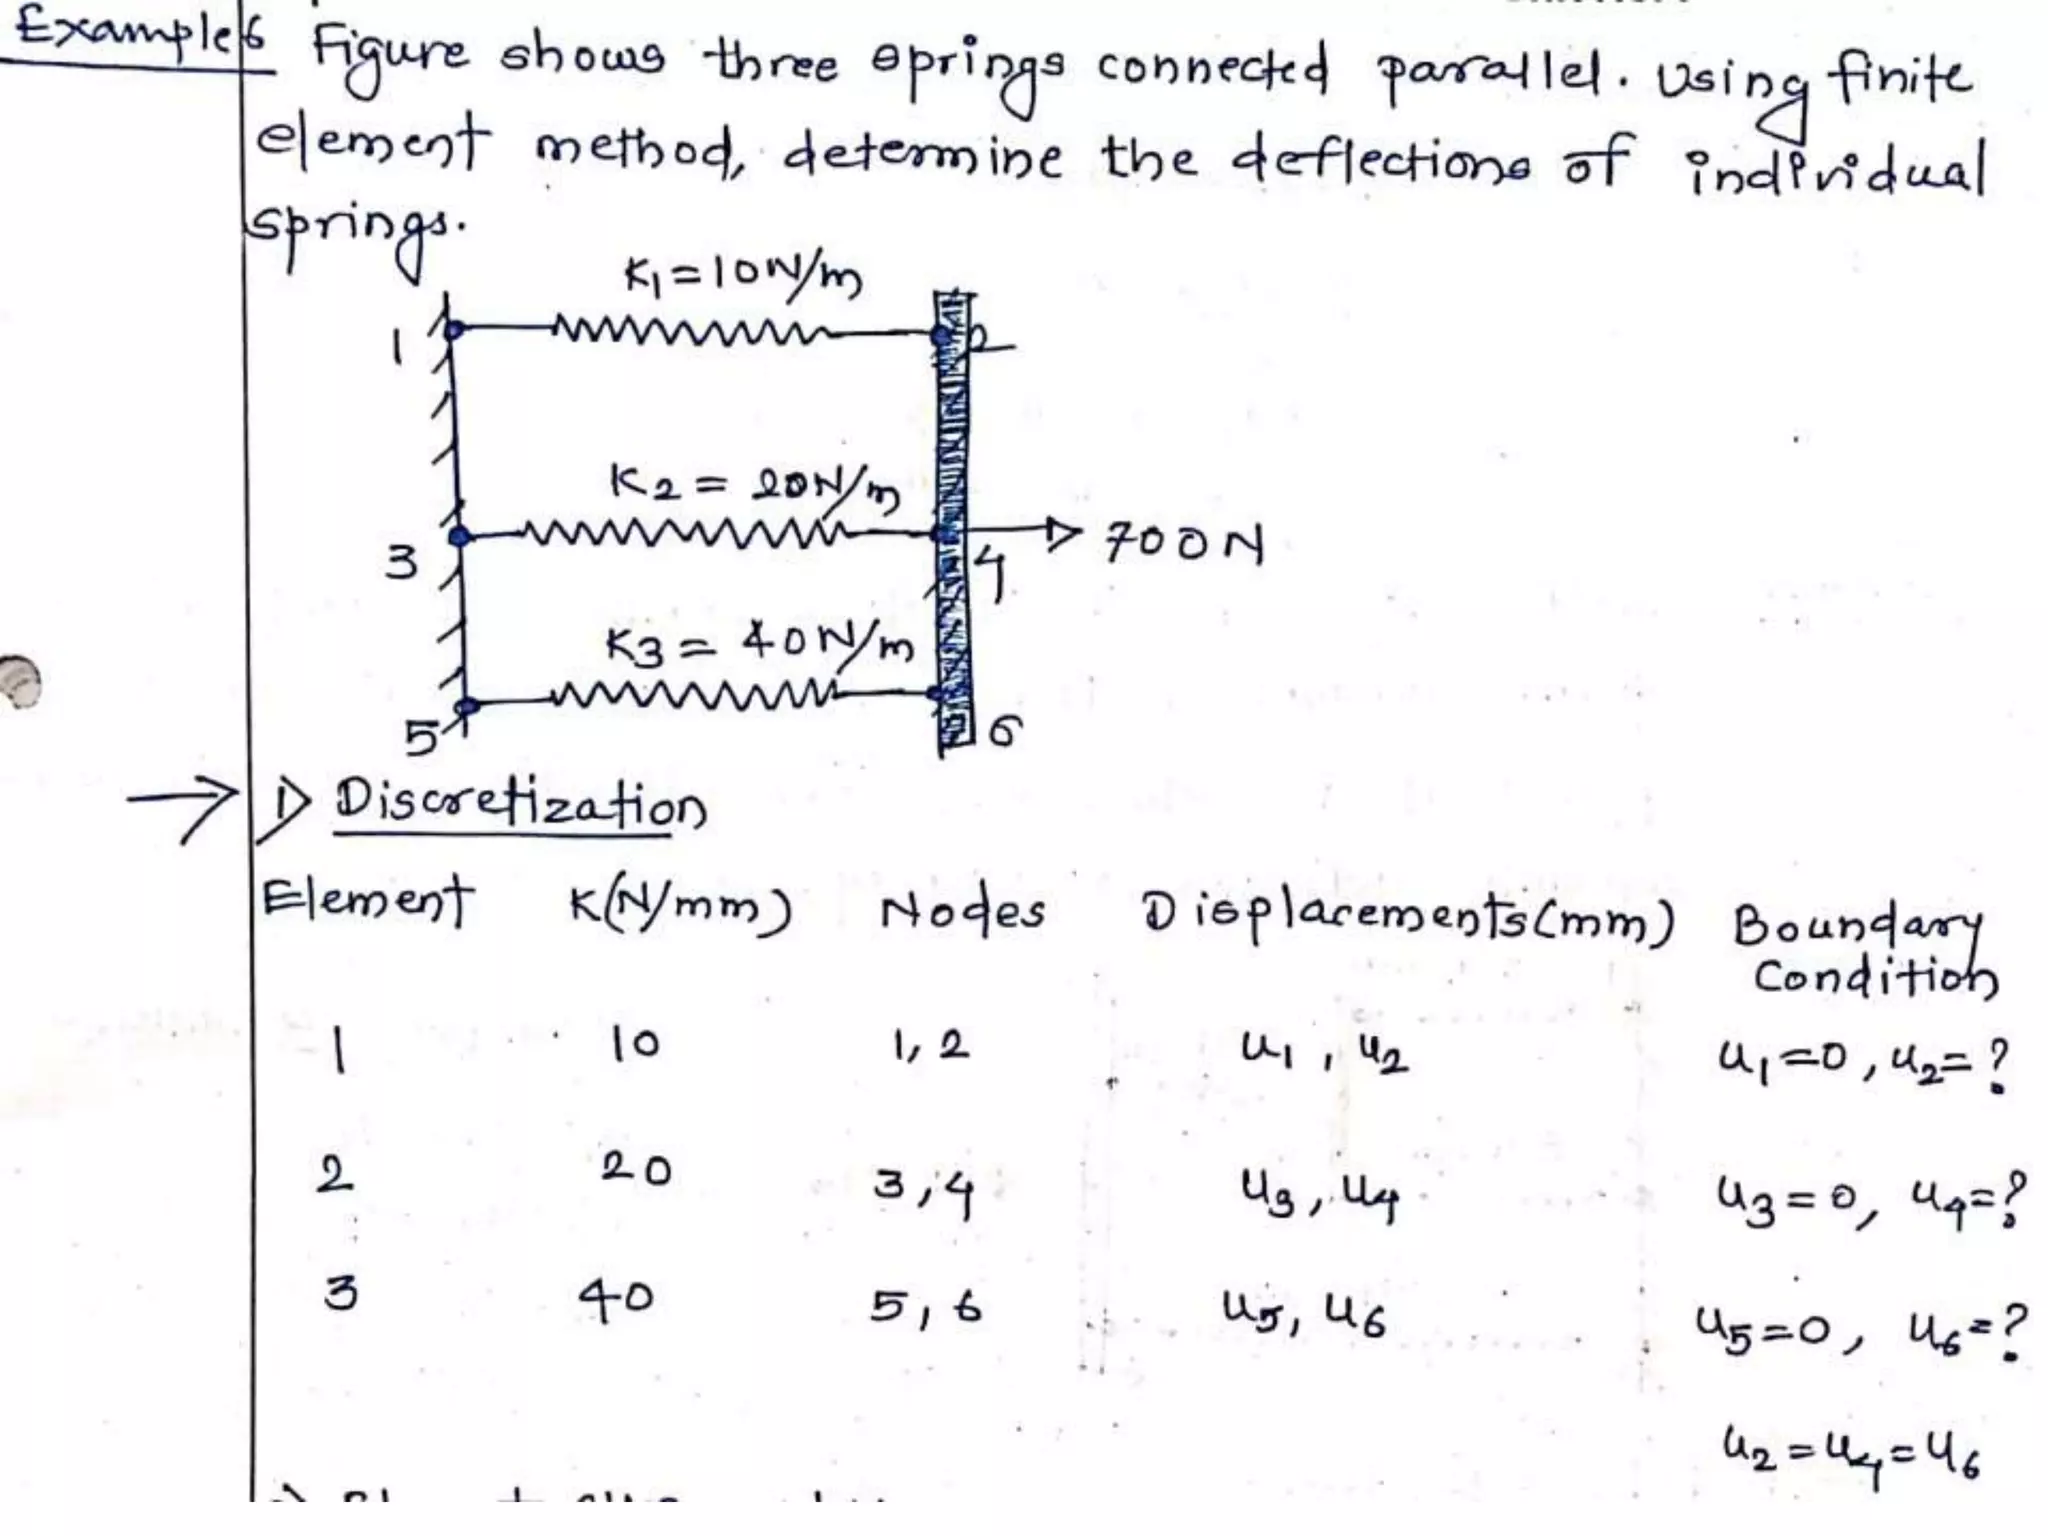 Example 6 Figure shows three springs connected parallel. Using finite
element method, determine the deflections of individual
springs.
K1 = 10 N/m
1
2
K2 = 20 N/m
3
4
700 N
K3 = 40 N/m
5
6
→ 1) Discretization
Element K(N/mm) Nodes Displacements(mm) Boundary Condition
1 10 1, 2 u1, u2 u1=0, u2=?
2 20 3, 4 u3, u4 u3=0, u4=?
3 40 5, 6 u5, u6 u5=0, u6=?
u2 = u4 = u6